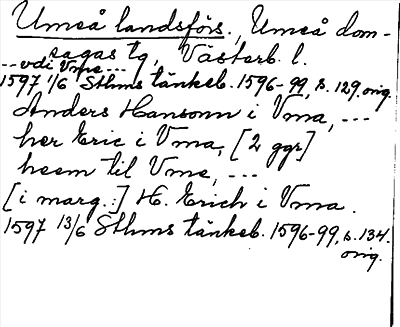 Umeå landsförs., Umeå dom-
sagas tg, Västerb. l.
-- vdi Vme ---
1597 1/6 Sthms tänkeb. 1596-99, s. 129. orig.
Anders Hansonn i Vma, ---
her Eric i Vma, [2 ggr]
heem til Vme, ---
[i marg.:] H. Erich i Vma.
1597 13/6 Sthms tänkeb. 1596-99, s. 134.
orig.